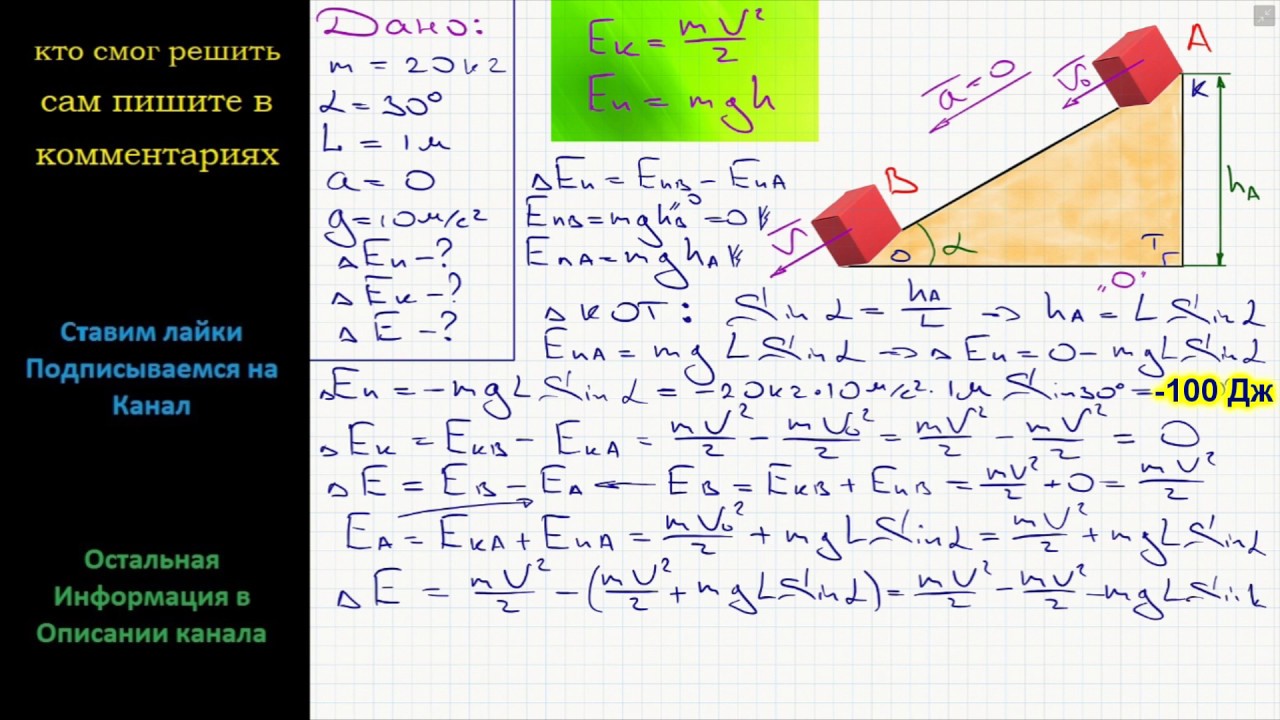 кто смог решить
сам пишите в
комментариях
Ставим лайки
Подписываемся на
Канал
Остальная
Информация в
Описании канала
Дано:
m = 20кг
α = 30°
L = 1м
a = 0
g = 10м/с²
ΔEп - ?
ΔEк - ?
ΔE - ?
Eк = mV²/2
Eп = mgh
A
B
V₀
a = 0
V
K
O
T
α
hA
"0"
ΔEп = EпB - EпA
EпB = mghB "0" = 0
EпA = mghA
Δ КОТ: Sin α = hA/L → hA = L Sin α
EпA = mg L Sin α → ΔEп = 0 - mgL Sin α
ΔEп = -mgL Sin α = -20кг·10м/с²·1м Sin 30° = -100 Дж
ΔEк = EкB - EкA = mV²/2 - mV₀²/2 = mV²/2 - mV²/2 = 0
ΔE = EB - EA ← EB = EкB + EпB = mV²/2 + 0 = mV²/2
EA = EкA + EпA = mV₀²/2 + mgL Sin α = mV²/2 + mgL Sin α
ΔE = mV²/2 - (mV²/2 + mgL Sin α) = mV²/2 - mV²/2 - mgL Sin